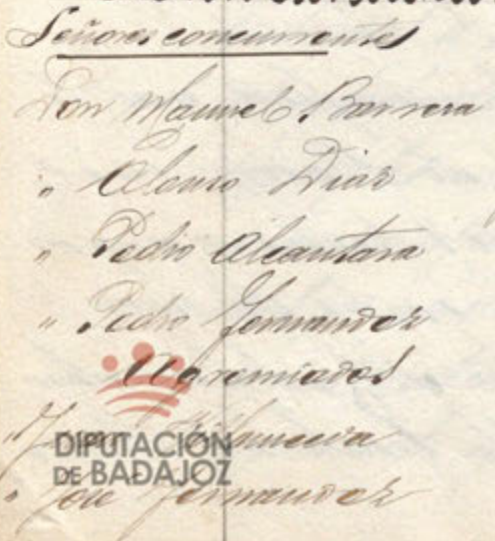 Señores concurrentes
Don Manuel Barrera
" Alonso Diaz
" Pedro Alcantara
" Pedro Fernandez
Agremiados
"
DIPUTACIÓN
DE BADAJOZ
" Jose Fernandez